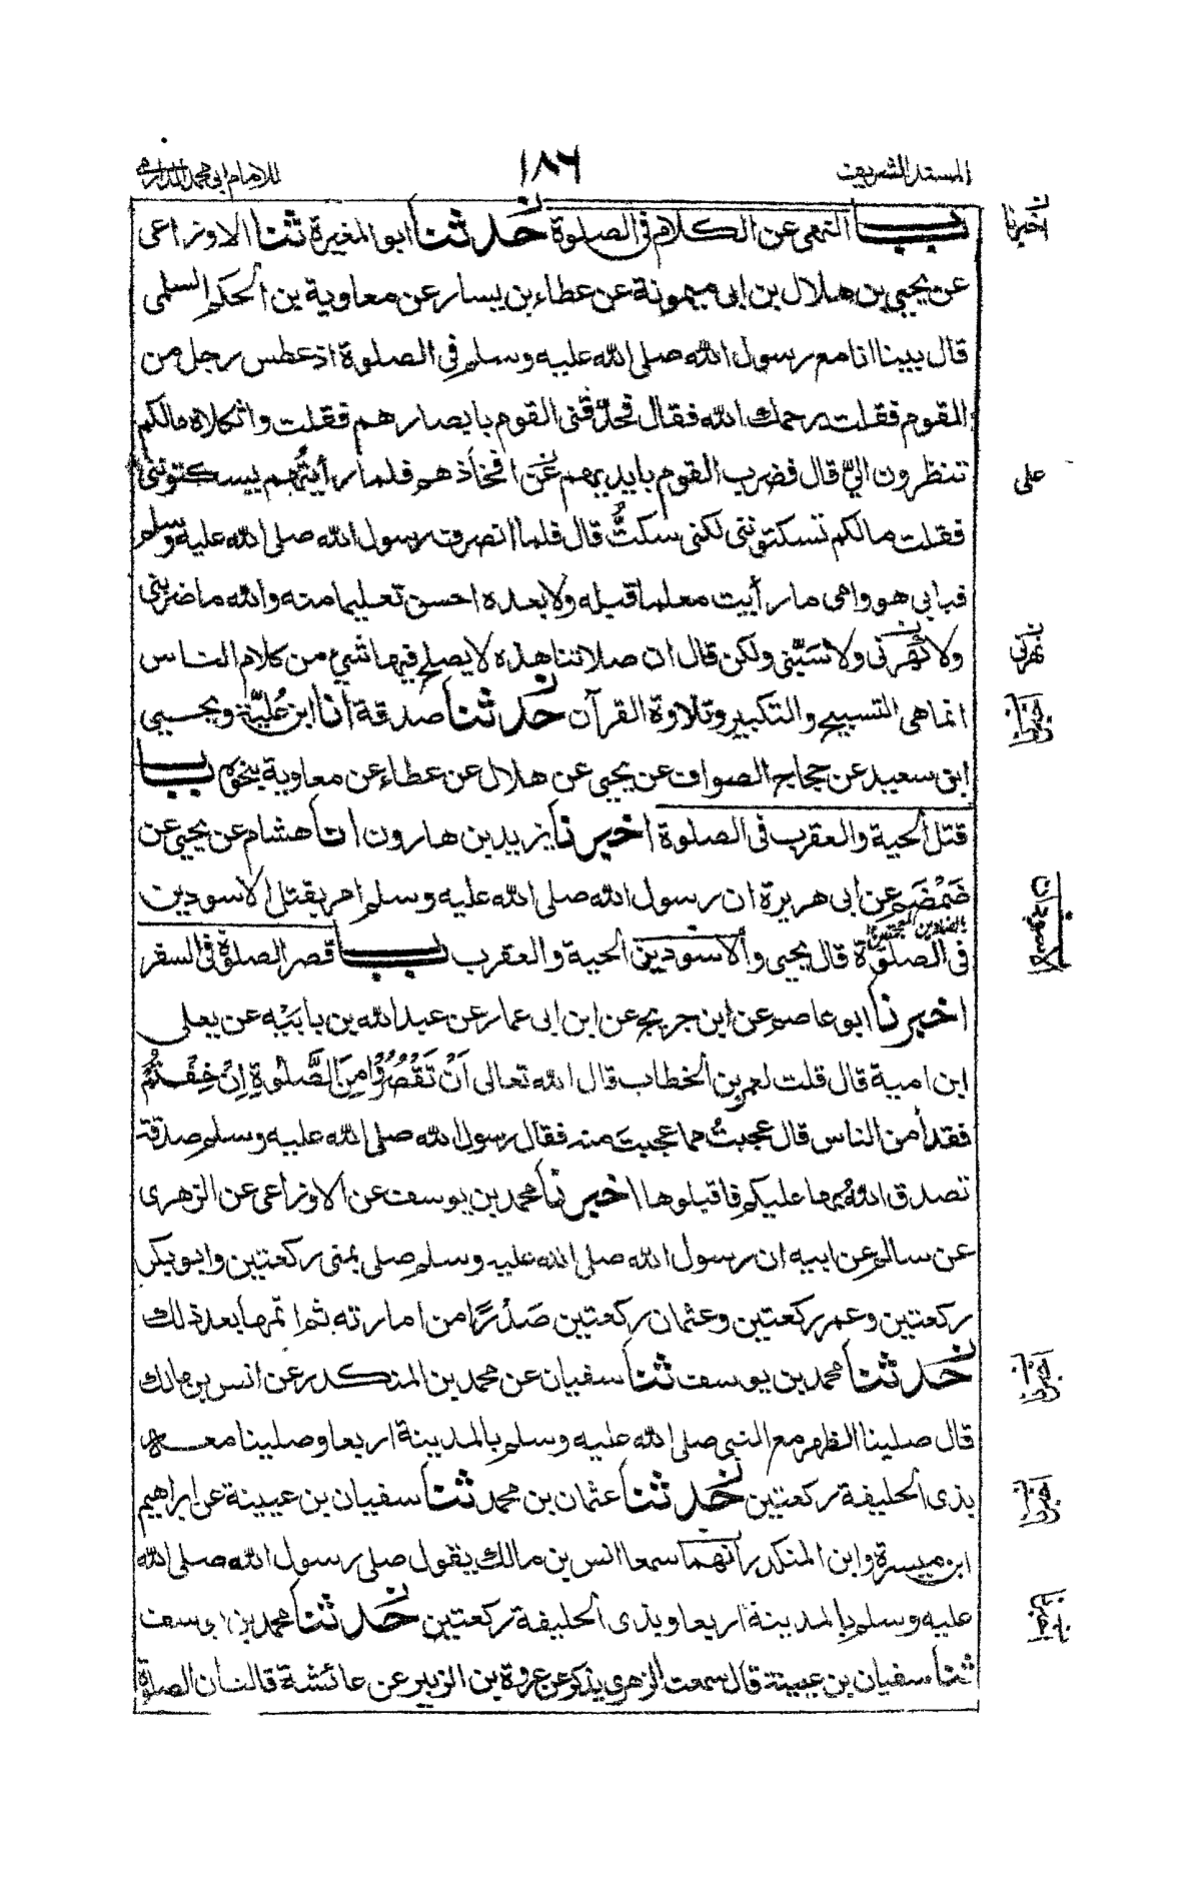 المسند الشريف
١٨٦
للامام ابى محمد الدارمى
باب النهى عن الكلام فى الصلوة حدثنا ابو المغيرة ثنا الاوزاعى
اخبرنا
عن يحيى بن هلال بن ابى ميمونة عن عطاء بن يسار عن معاوية بن الحكم السلمى
قال بينا انا مع رسول الله صلى الله عليه وسلم فى الصلوة اذ عطس رجل من
القوم فقلت يرحمك الله فقال فحدّقنى القوم بابصارهم فقلت واثكلاه مالكم
تنظرون الىّ قال فضرب القوم بايديهم عن افخاذهم فلما رأيتُهم يسكتوننى
على
فقلت مالكم تسكتوننى لكنى سكتُّ قال فلما انصرف رسول الله صلى الله عليه وسلم
فبابى هو وامى ما رأيت معلما قبله ولا بعده احسن تعليما منه والله ما ضربنى
ولا كهرنى ولا سَبَّنى ولكن قال ان صلاتنا هذه لا يصلح فيها شئ من كلام الناس
نهرنى
انما هى التسبيح والتكبير وتلاوة القرآن حدثنا صدقة انا ابن عُليّة ويحيى
اخبرنا
ابن سعيد عن حجاج الصواف عن يحيى عن هلال عن عطاء عن معاوية بنحوه باب
قتل الحية والعقرب فى الصلوة اخبرنا يزيد بن هارون انا هشام عن يحيى عن
ضَمْضَم عن ابى هريرة ان رسول الله صلى الله عليه وسلم امر بقتل الاسودين
فى الصلوة قال يحيى والاسودين الحية والعقرب باب قصر الصلوة فى السفر
اخبرنا ابو عاصم عن ابن جريج عن ابن ابى عمار عن عبد الله بن بابَيْه عن يعلى
ابن امية قال قلت لعمر بن الخطاب قال الله تعالى اَنْ تَقْصُرُوْا مِنَ الصَّلٰوةِ اِنْ خِفْتُمْ
فقد أمن الناس قال عجبتُ مما عجبتَ منه فقال رسول الله صلى الله عليه وسلم صدقة
تصدق اللهُ بها عليكم فاقبلوها اخبرنا محمد بن يوسف عن الاوزاعى عن الزهرى
عن سالم عن ابيه ان رسول الله صلى الله عليه وسلم صلى بمنى ركعتين وابو بكر
ركعتين وعمر ركعتين وعثمان ركعتين صَدْرًا من امارته ثم اتمها بعد ذلك
حدثنا محمد بن يوسف ثنا سفيان عن محمد بن المنكدر عن انس بن مالك
اخبرنا
قال صلينا الظهر مع النبى صلى الله عليه وسلم بالمدينة اربعا وصلينا معه
بذى الحليفة ركعتين حدثنا عثمان بن محمد ثنا سفيان بن عيينة عن ابراهيم
اخبرنا
ابن ميسرة وابن المنكدر أنهما سمعا انس بن مالك يقول صلى رسول الله صلى الله
عليه وسلم بالمدينة اربعا وبذى الحليفة ركعتين حدثنا محمد بن يوسف
اخبرنا
ثنا سفيان بن عيينة قال سمعت الزهرى يذكر عن عروة بن الزبير عن عائشة قالت ان الصلوة